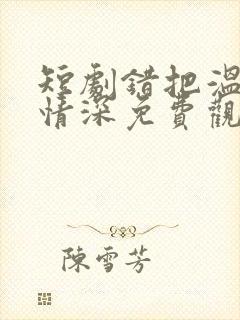 短劇錯把溫
情深免費觀
陳雪芳